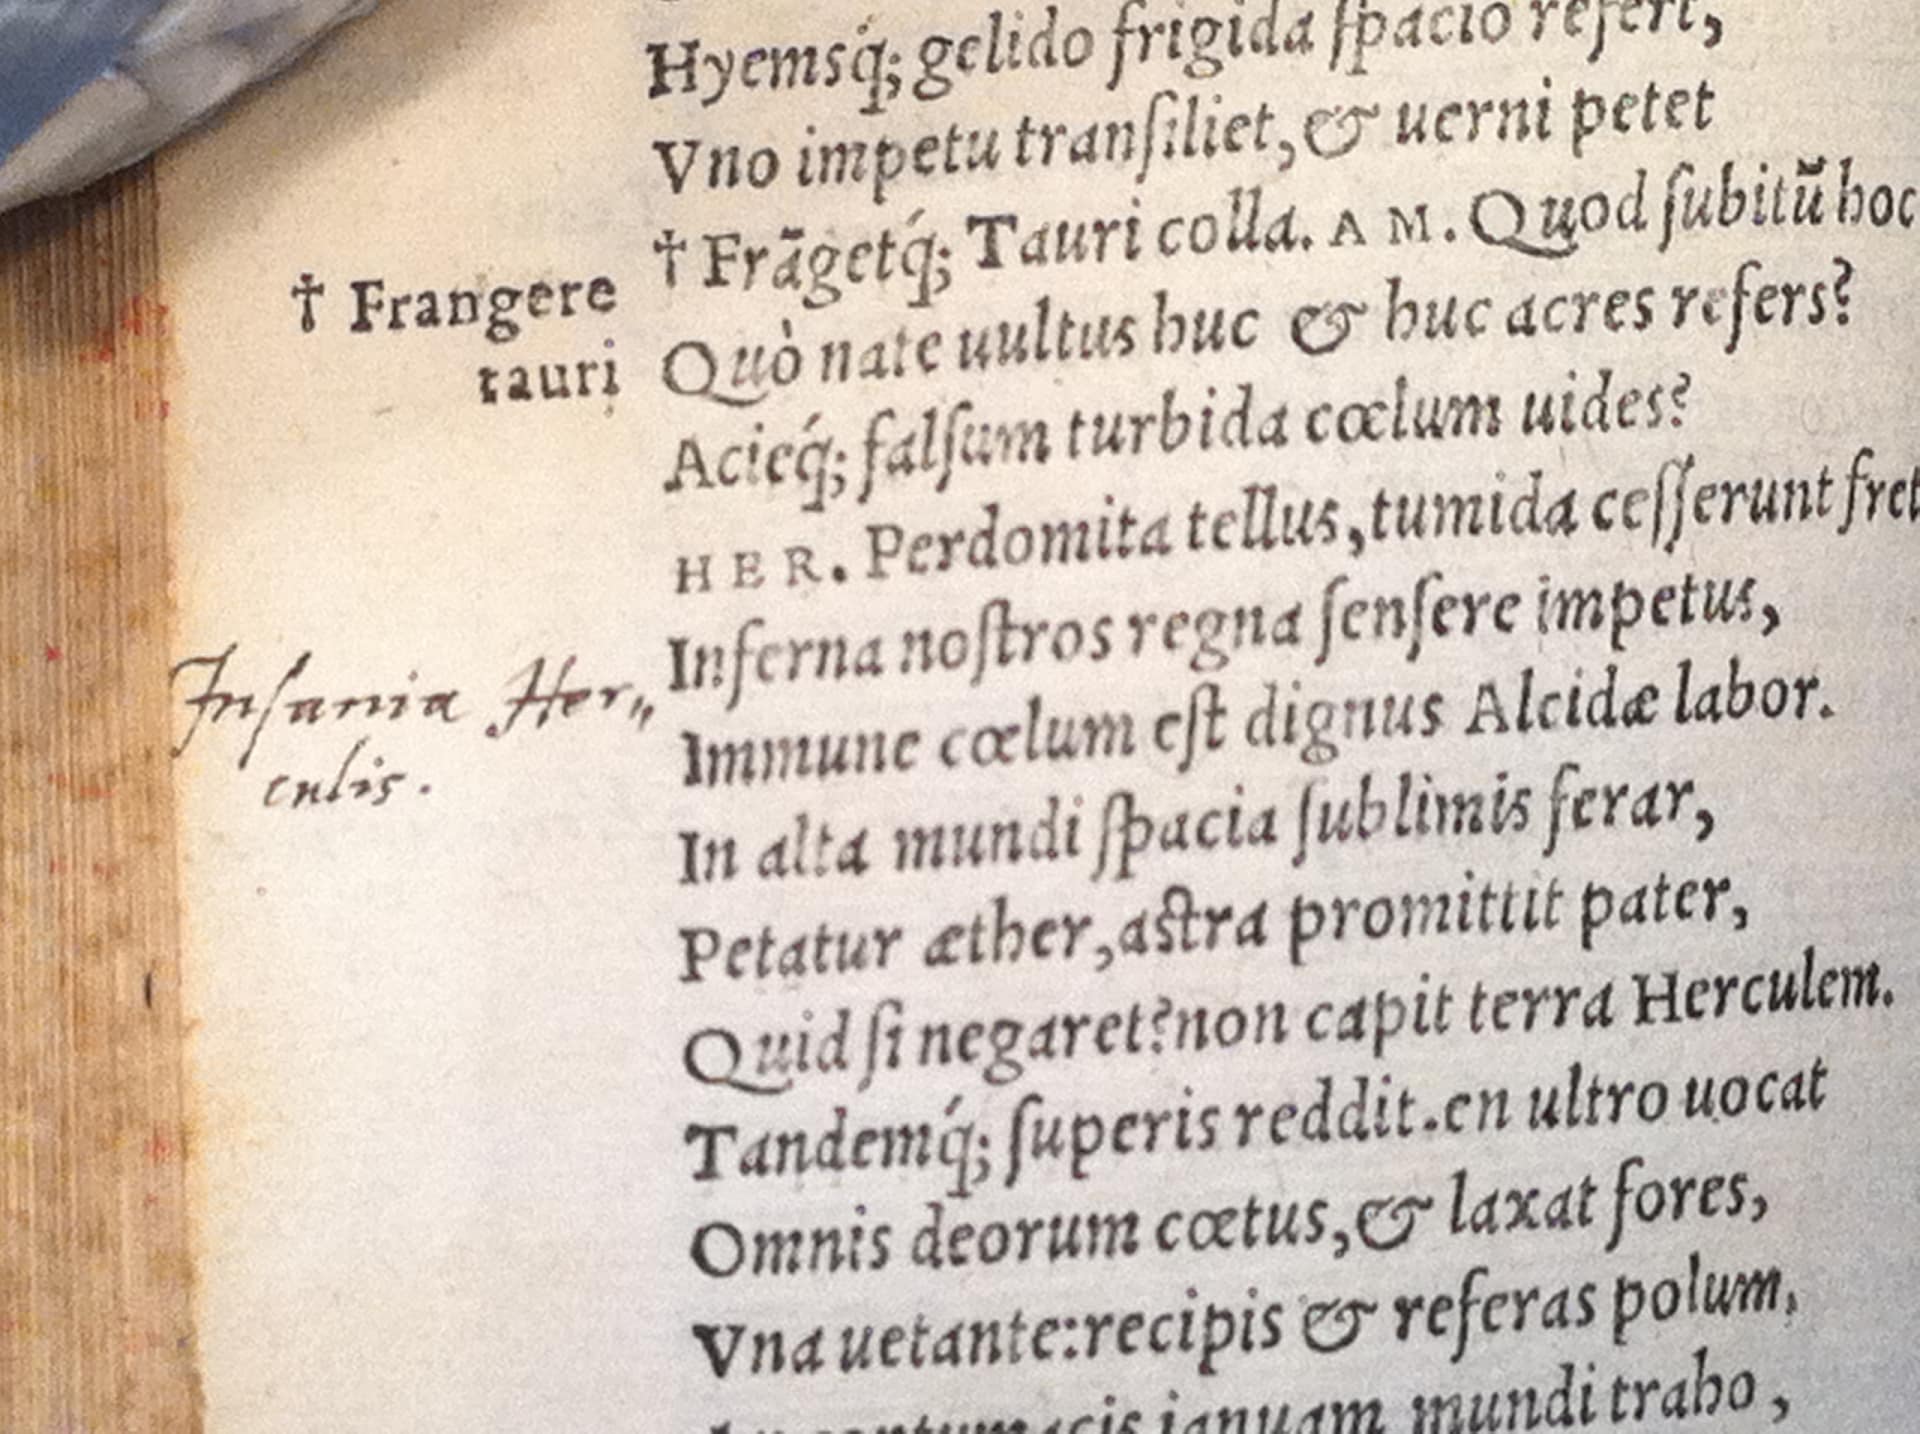 Hyemsq́; gelido frigida ſpacio refert,
Vno impetu tranſiliet, & uerni petet
† Frãgetq́; Tauri colla. A M. Quod ſubitũ hoc
† Frangere
tauri
Quò nate uultus huc & huc acres refers?
Acieq́; falſum turbida cœlum uides?
HER. Perdomita tellus, tumida ceſſerunt fret
Inferna noſtros regna ſenſere impetus,
Inſania Her„
culis.
Immune cœlum eſt dignus Alcidæ labor.
In alta mundi ſpacia ſublimis ferar,
Petatur æther, aſtra promittit pater,
Quid ſi negaret? non capit terra Herculem.
Tandemq́; ſuperis reddit. en ultro uocat
Omnis deorum cœtus, & laxat fores,
Vna uetante: recipis & referas polum,
contumacis ianuam mundi traho,